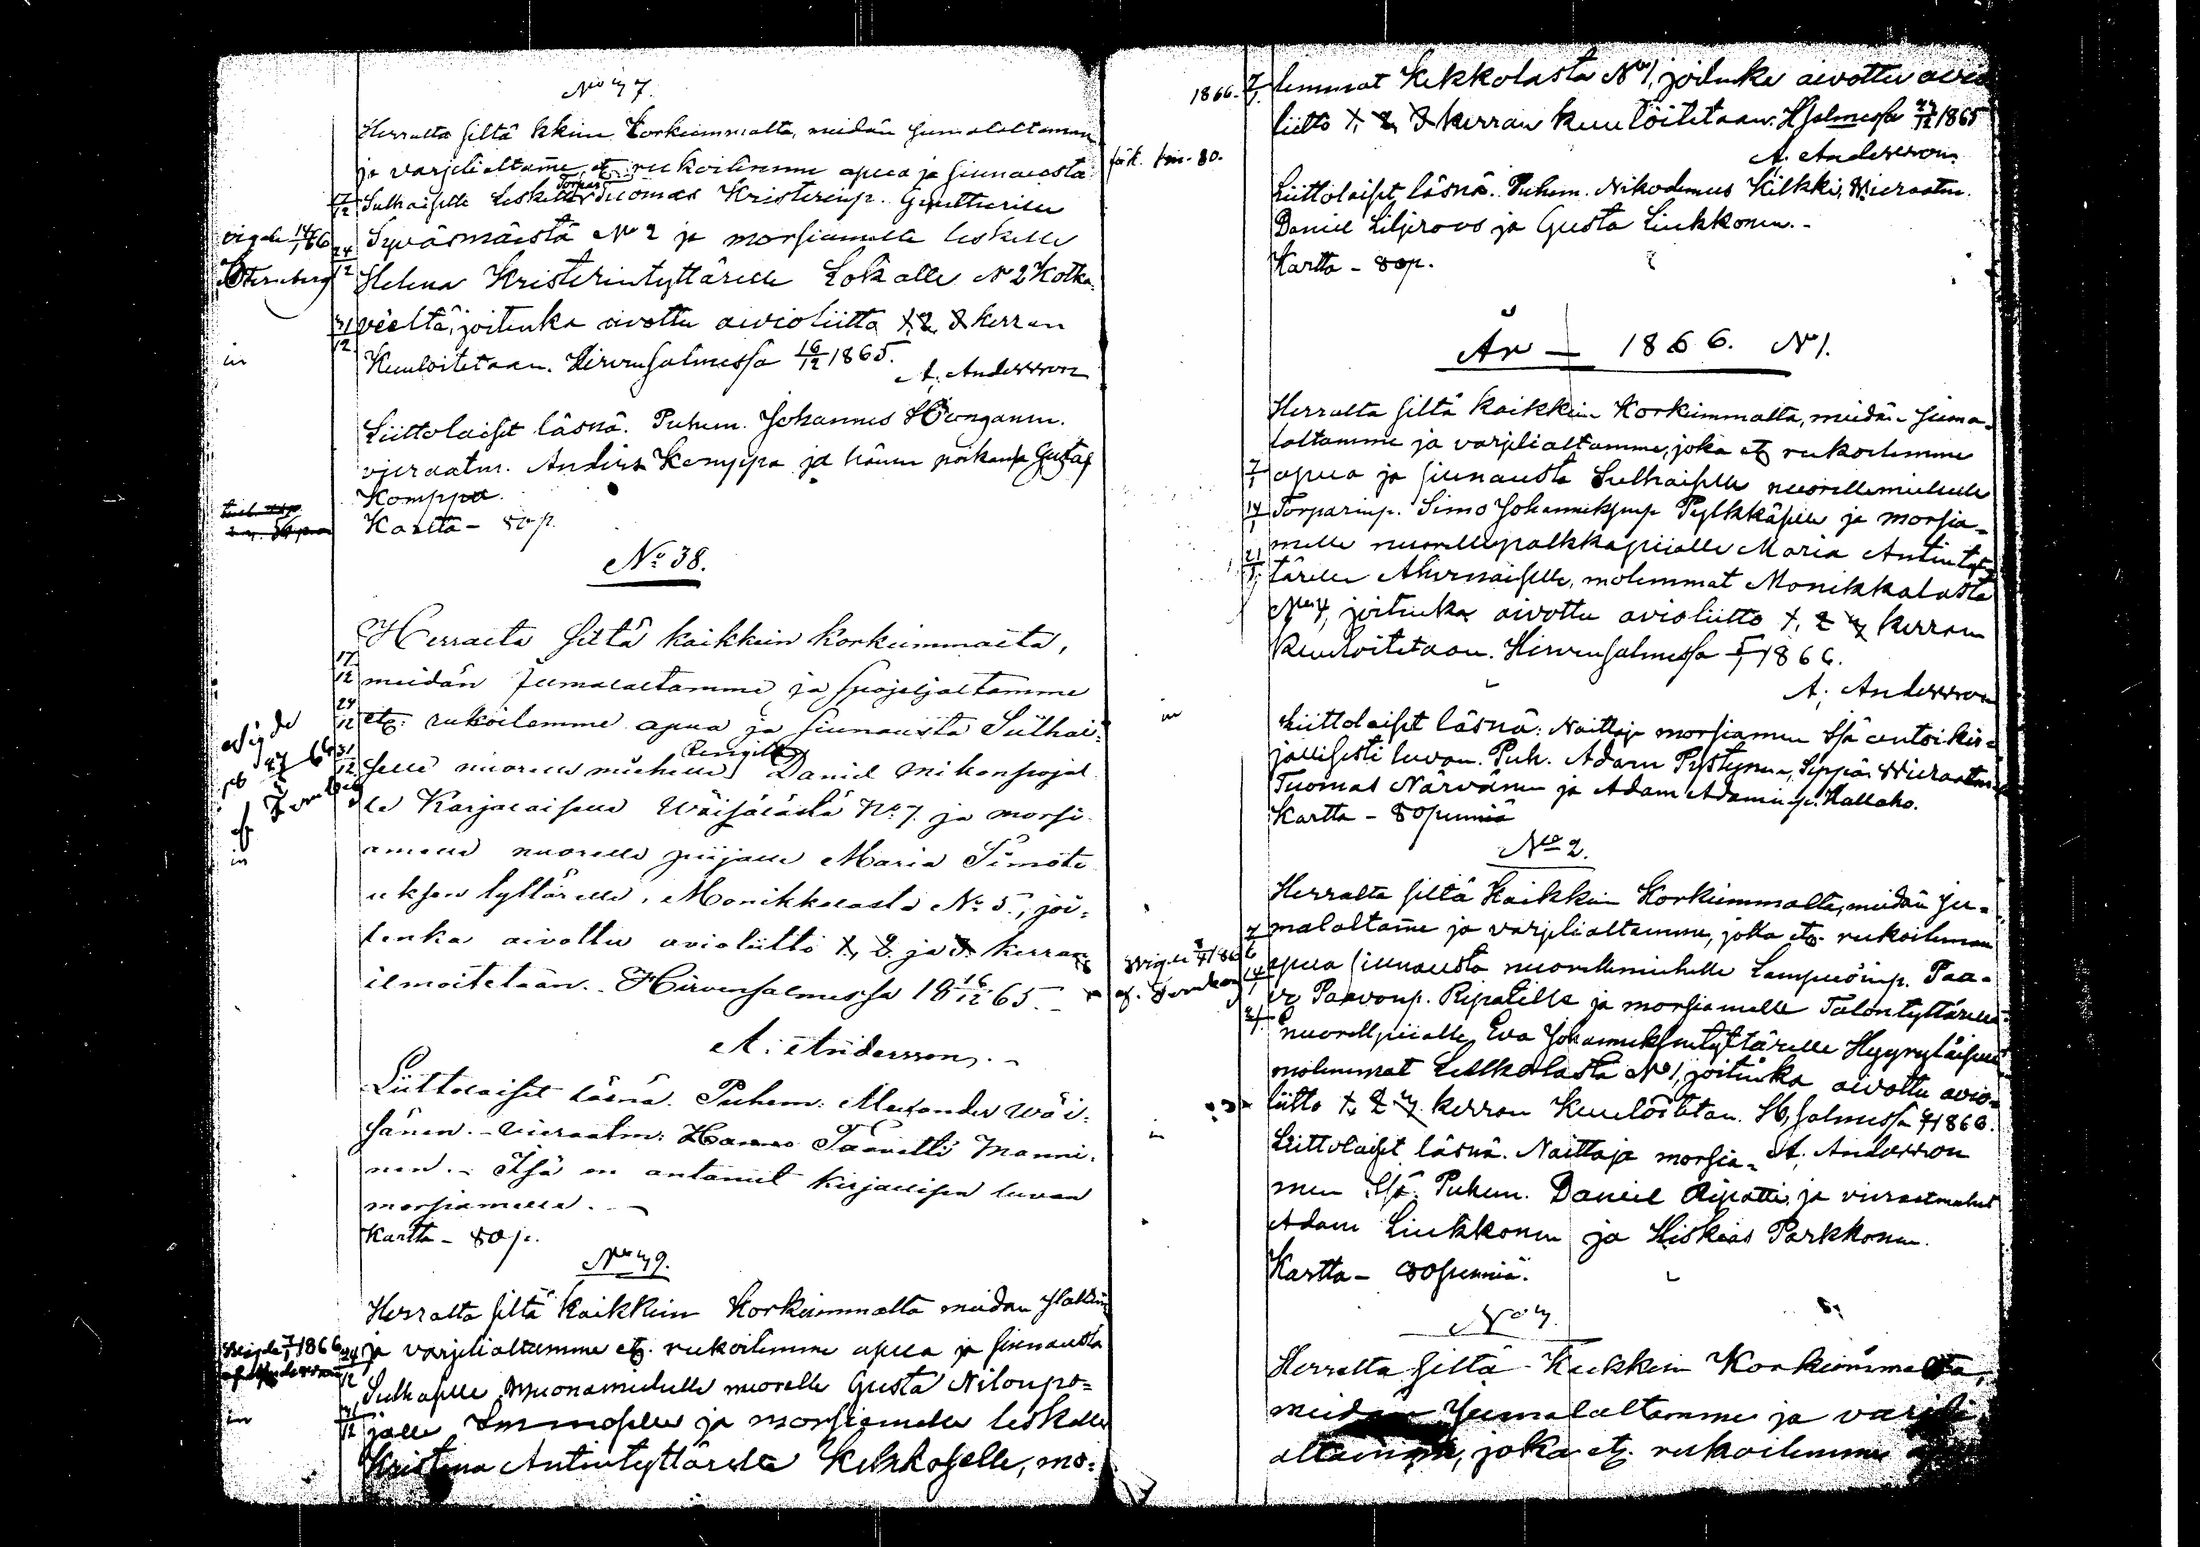 No 37.
Herralta siltä kkein Korkeimmalta, meidän Jumalaltamme
ja varjelialtame, etc rukoilemme apua ja siunausta
17/12 Sulhaiselle Leskelle Torpari Tuomas Kristerinp.
vigde 14/1 66 Syväsmäestä No 2 ja morsiamelle leskelle
24/12 Helena Kristerintyttärelle Kokalle N 2 Kotka-
31/12 veeltä, joitenka aivottu avioliitto 1, 2, 3 kerran
in Kuuloitetaan. Hirvensalmessa 16/12 1865.
A. Andersson
Liittolaiset läsnä. Puhem. Johannes Honganen.
vieraatm. Anders Komppa ja hänen poikansa Gustaf
Komppa.
Kartta - 80 p.
No 38.
Herralta siltä kaikkein korkeimmalta,
17/12 meidän Jumalaltamme ja suojeljaltamme
24/12 etc: rukoilemme apua ja siunausta Sulhai-
31/12 selle nuorelle miehelle, Rengille Daniel Mikonpojal
le Karjalaiselle Wäisälästä No 7. ja morsi
amelle nuorelle piijalle Maria Simote
uksen tyttärelle, Monikkalasta No 5., joi-
tenka aivottu avioliitto 1, 2. ja 3. kerran
ilmoitetaan. Hirvensalmessa 18 16/12 65.
A. Andersson.
Liittolaiset läsnä. Puhem: Alexander Wäi-
sänen. - Vieraatm: Taavetti Manni-
nen. - Isä on antanut kirjallisen luvan
morsiamelle.
Kartta - 80 p.
No 39.
Herralta siltä kaikkein Korkeimmalta meidan
Vigde 7/1 1866 24/12 ja varjelialtamme etc. rukoilemme apua ja siunausta
af Andersson Sulhaselle Muonamiehelle nuorelle Gusta Nilonpo-
in 31/12 jalle ja morsiamelle leskelle
Kristina Antintyttärelle Kekkoselle, mo-
1866. 7/1 lemmat Kekkolasta No 1, joitenka aivottu avio
liitto 1, 2, 3 kerran kuulöitetaan. HSalmessa 24/12 1865
A. Andersson
Liittolaiset läsnä. Puhem. Nikodemus Kilkki, Wieraatm.
Daniel Liljeroos ja Gusta Liukkonen. -
Kartta - 80 p.
År - 1866. N 1.
Herralta siltä kaikkein Korkimmalta, meidän Juma-
laltamme ja varjelialtamme, joka etc rukoilemme
7/1 apua ja siunausta Sulhaiselle nuorellemiehelle
14/1 Torparinp. Simo Johanneksenp Pylkkäselle ja morsia-
21/1 melle nuorellepalkkapiialle Maria Antintyt-
tärelle Ahvenaiselle, molemmat Monikkalasta
No 4, joitenka aivottu avioliitto 1, 2 3 kerran
Kuuloitetaan. Hirvensalmessa 5/1 1866.
A. Andersson
in Liittolaiset läsnä: Naittaja morsiamen Isä antoi kir-
jallisesti luvan. Puh. Adam Pystynen, Seppä. Wieraatm
Tuomas Närvänen ja Adam Adaminp. Hallaho.
Kartta - 80 penniä
No 2.
Herralta siltä Kaikkein Korkeimmalta, meidän Ju-
7/1 malaltame ja varjelialtamme, joka etc. rukoilemme
14/1 apua siunausta nuorellemiehelle Lampuöinp. Paa-
vo Paavonp. Ripatille ja morsiamelle Talontyttärelle
21/1 nuorellpiialle Eva Johanneksentyttärelle Hyyryläiselle
molemmat Lellkolasta No 1, joitenka aivottu avio-
liitto 1, 2 3 kerran Kuulöitetan. H,salmessa 1866.
in Liittolaiset läsnä. Naittaja morsia- A. Andersson
men Isä. Puhem. Daniel Ripatti ja vieraatmiehet
Adam Liukkonen ja Hiskias Parkkonen.
Kartta - 80 penniä.
No 3.
Herralta siltä Kaikkein Korkeimmalta,
meidän Jumalaltamme ja varjeli
altamme, joka etc. rukoilemme